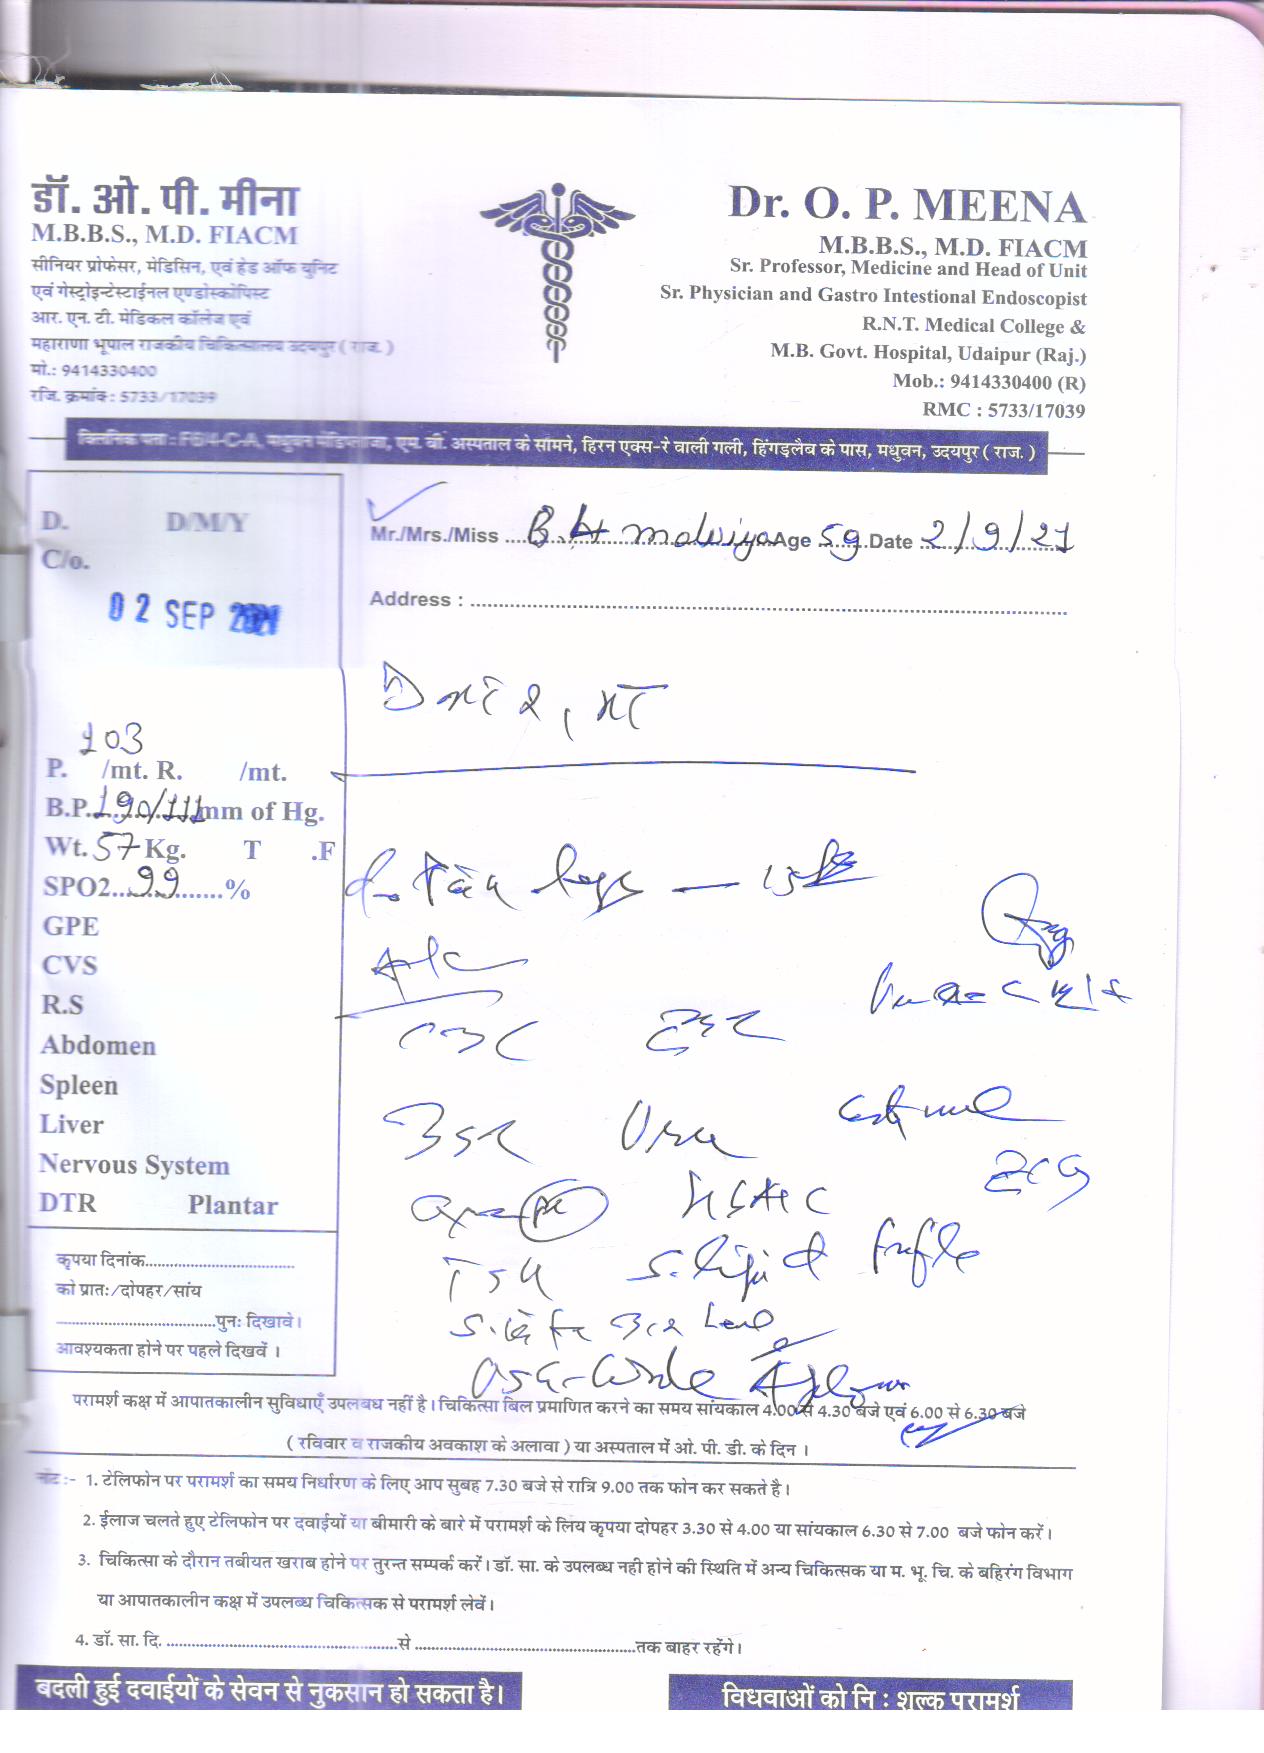 डॉ. ओ. पी. मीना
M.B.B.S., M.D. FIACM
सीनियर प्रोफेसर, मेडिसिन, एवं हेड ऑफ युनिट
एवं गेस्ट्रोइन्टेस्टाईनल एण्डोस्कोपिस्ट
आर. एन. टी. मेडिकल कॉलेज एवं
महाराणा भूपाल राजकीय चिकित्सालय उदयपुर ( राज. )
मो.: 9414330400
रजि. क्रमांक : 5733/17039
Dr. O. P. MEENA
M.B.B.S., M.D. FIACM
Sr. Professor, Medicine and Head of Unit
Sr. Physician and Gastro Intestional Endoscopist
R.N.T. Medical College &
M.B. Govt. Hospital, Udaipur (Raj.)
Mob.: 9414330400 (R)
RMC : 5733/17039
क्लिनिक पता : F6/4-C-A, मधुवन मेडिप्लाजा, एम. बी. अस्पताल के सामने, हिरन एक्स-रे वाली गली, हिंगड़लैब के पास, मधुवन, उदयपुर ( राज. )
D. D/M/Y
C/o.
02 SEP 2021
Mr./Mrs./Miss B.H Malviya Age 59 Date 2/9/21
Address :
103
P. /mt. R. /mt.
B.P. 190/111 mm of Hg.
Wt. 57 Kg. T .F
SPO2 99 %
GPE
CVS
R.S
Abdomen
Spleen
Liver
Nervous System
DTR Plantar
CBC ESR
Urine
ECG
HbA1c
TSH S. lipid Profile
S. B12 Level
कृपया दिनांक
को प्रातः/दोपहर/सांय
पुनः दिखावे।
आवश्यकता होने पर पहले दिखवें ।
परामर्श कक्ष में आपातकालीन सुविधाएँ उपलबध नहीं है। चिकित्सा बिल प्रमाणित करने का समय सांयकाल 4.00 से 4.30 बजे एवं 6.00 से 6.30 बजे
( रविवार व राजकीय अवकाश के अलावा ) या अस्पताल में ओ. पी. डी. के दिन ।
नोट :- 1. टेलिफोन पर परामर्श का समय निर्धारण के लिए आप सुबह 7.30 बजे से रात्रि 9.00 तक फोन कर सकते है।
2. ईलाज चलते हुए टेलिफोन पर दवाईयों या बीमारी के बारे में परामर्श के लिय कृपया दोपहर 3.30 से 4.00 या सांयकाल 6.30 से 7.00 बजे फोन करें।
3. चिकित्सा के दौरान तबीयत खराब होने पर तुरन्त सम्पर्क करें। डॉ. सा. के उपलब्ध नही होने की स्थिति में अन्य चिकित्सक या म. भू. चि. के बहिरंग विभाग
या आपातकालीन कक्ष में उपलब्ध चिकित्सक से परामर्श लेवें।
4. डॉ. सा. दि. से तक बाहर रहेंगे।
बदली हुई दवाईयों के सेवन से नुकसान हो सकता है।
विधवाओं को नि : शुल्क परामर्श